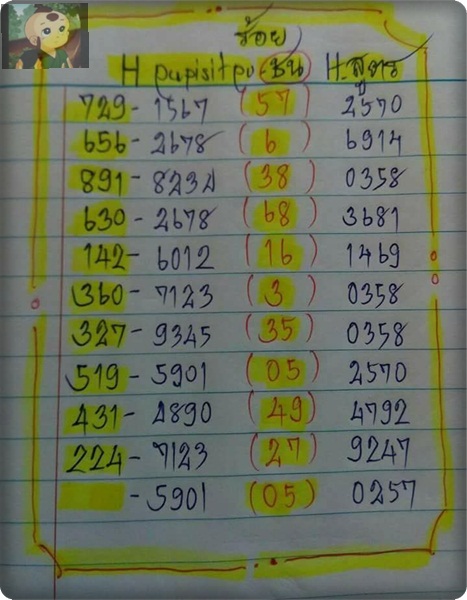 ร้อย
H pupisitpu-ชน H.สูตร
729-1567 (57) 2570
656-2678 (6) 6914
891-8234 (38) 0358
630-2678 (68) 3681
142-6012 (16) 1469
360-7123 (3) 0358
327-9345 (35) 0358
519-5901 (05) 2570
431-4890 (49) 4792
224-7123 (27) 9247
-5901 (05) 0257